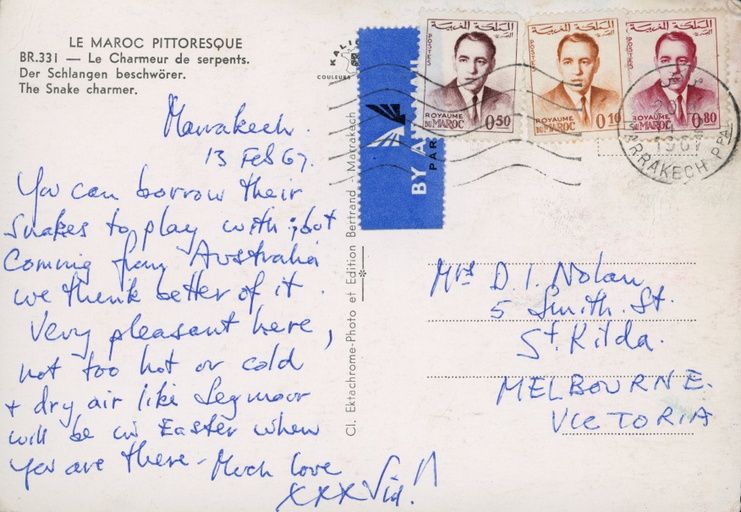 LE MAROC PITTORESQUE
BR.331 — Le Charmeur de serpents.
Der Schlangen beschwörer.
The Snake charmer.
Marrakech.
13 Feb 67.
You can borrow their
snakes to play with; but
coming from Australia
we think better of it.
Very pleasant here,
not too hot or cold
+ dry air like Seymour
will be in Easter when
you are there - Much love
XXX
Cl. Ektachrome-Photo et Edition Bertrand - Marrakech
COULEURS
BY
PAR
المملكة المغربية
POSTES
ROYAUME
DU MAROC
0,50
المملكة المغربية
POSTES
ROYAUME
DU MAROC
0,10
المملكة المغربية
ROYAUME
DU MAROC
0,80
1967
RRAKECH PPAL
Mrs D. I. Nolan
5 Smith St.
St. Kilda.
MELBOURNE.
VICTORIA